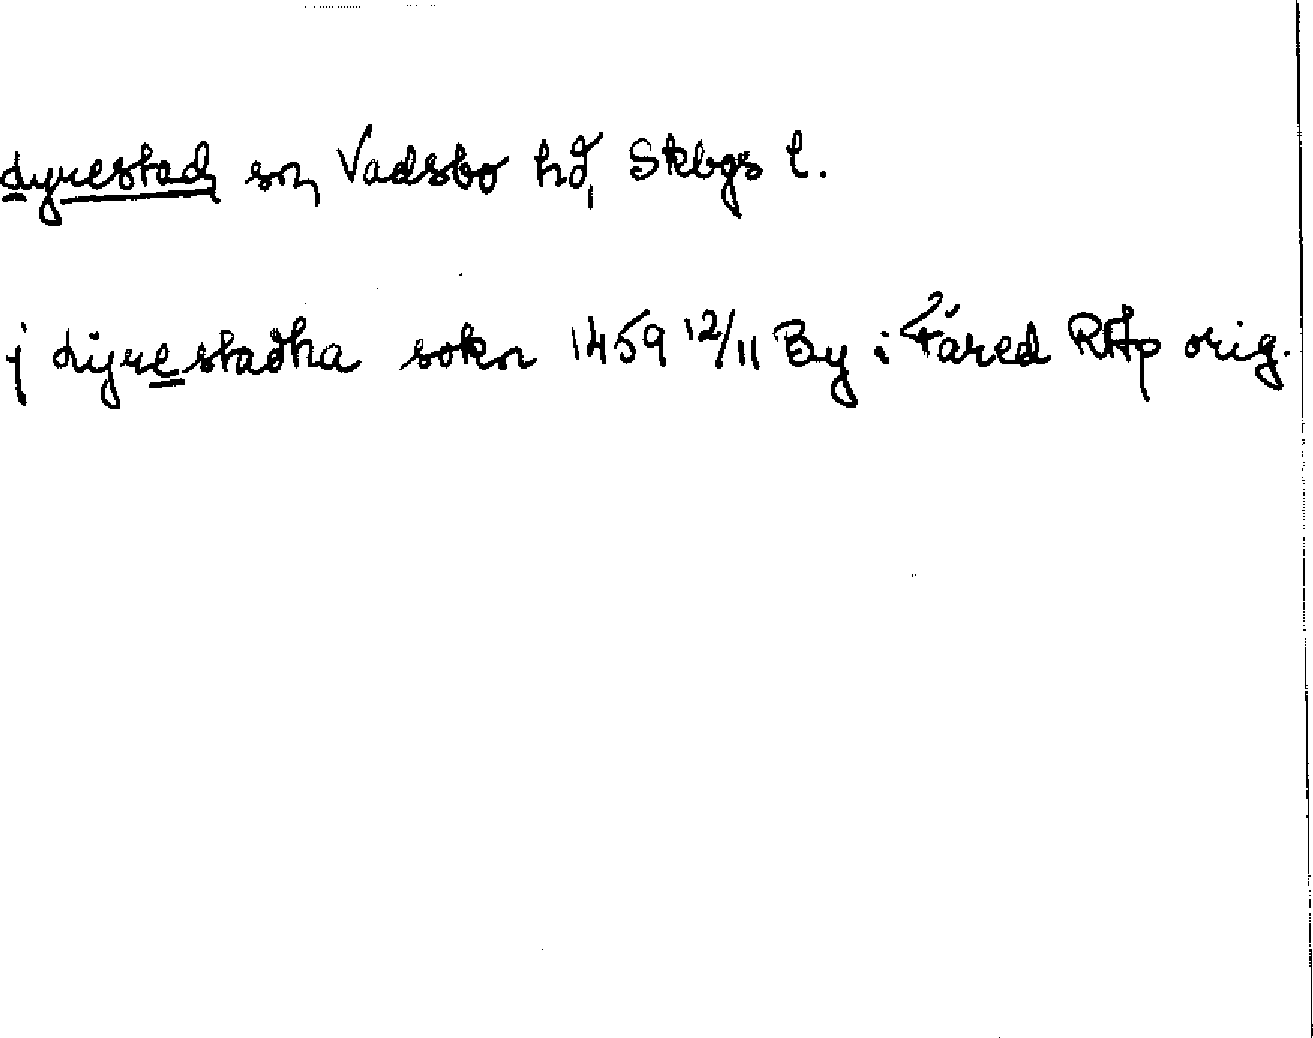 Lyrestad sn, Vadsbo hd, Skbgs l.
j Lijrestadha sokn 1459 12/11 By i Fåred RAp orig.